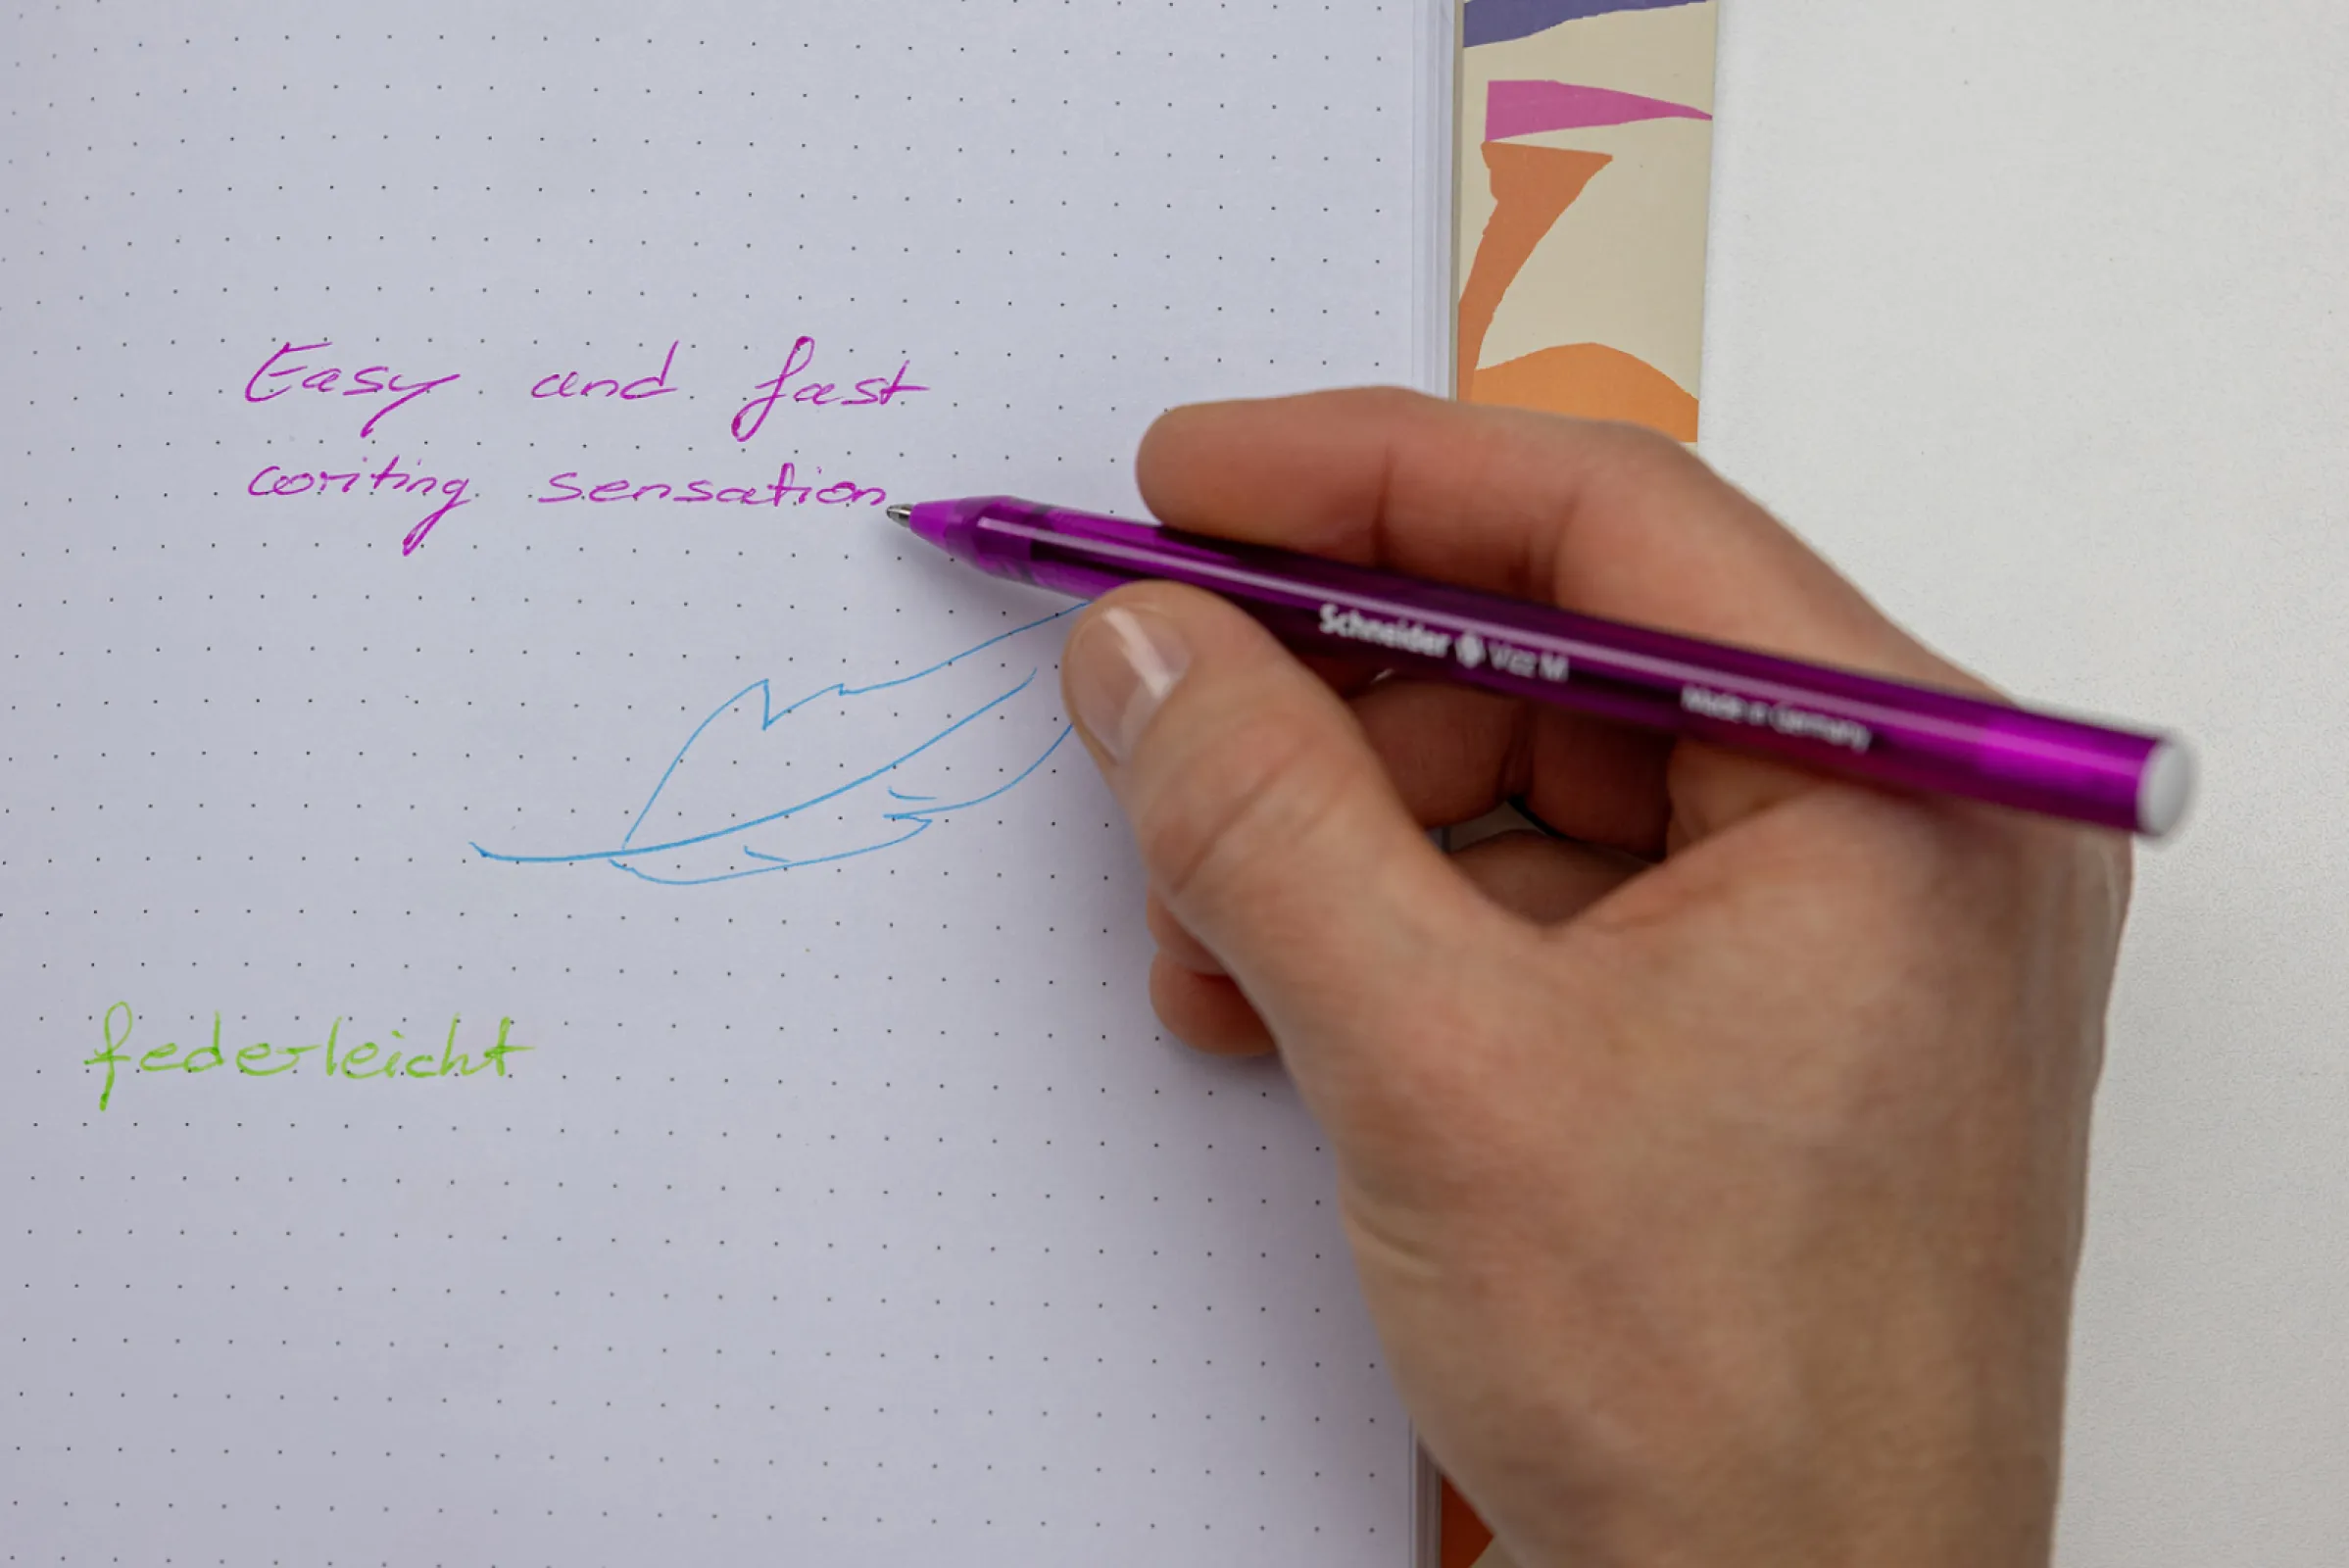 Easy and fast
writing sensation
Schneider Vizz M
Made in Germany
federleicht